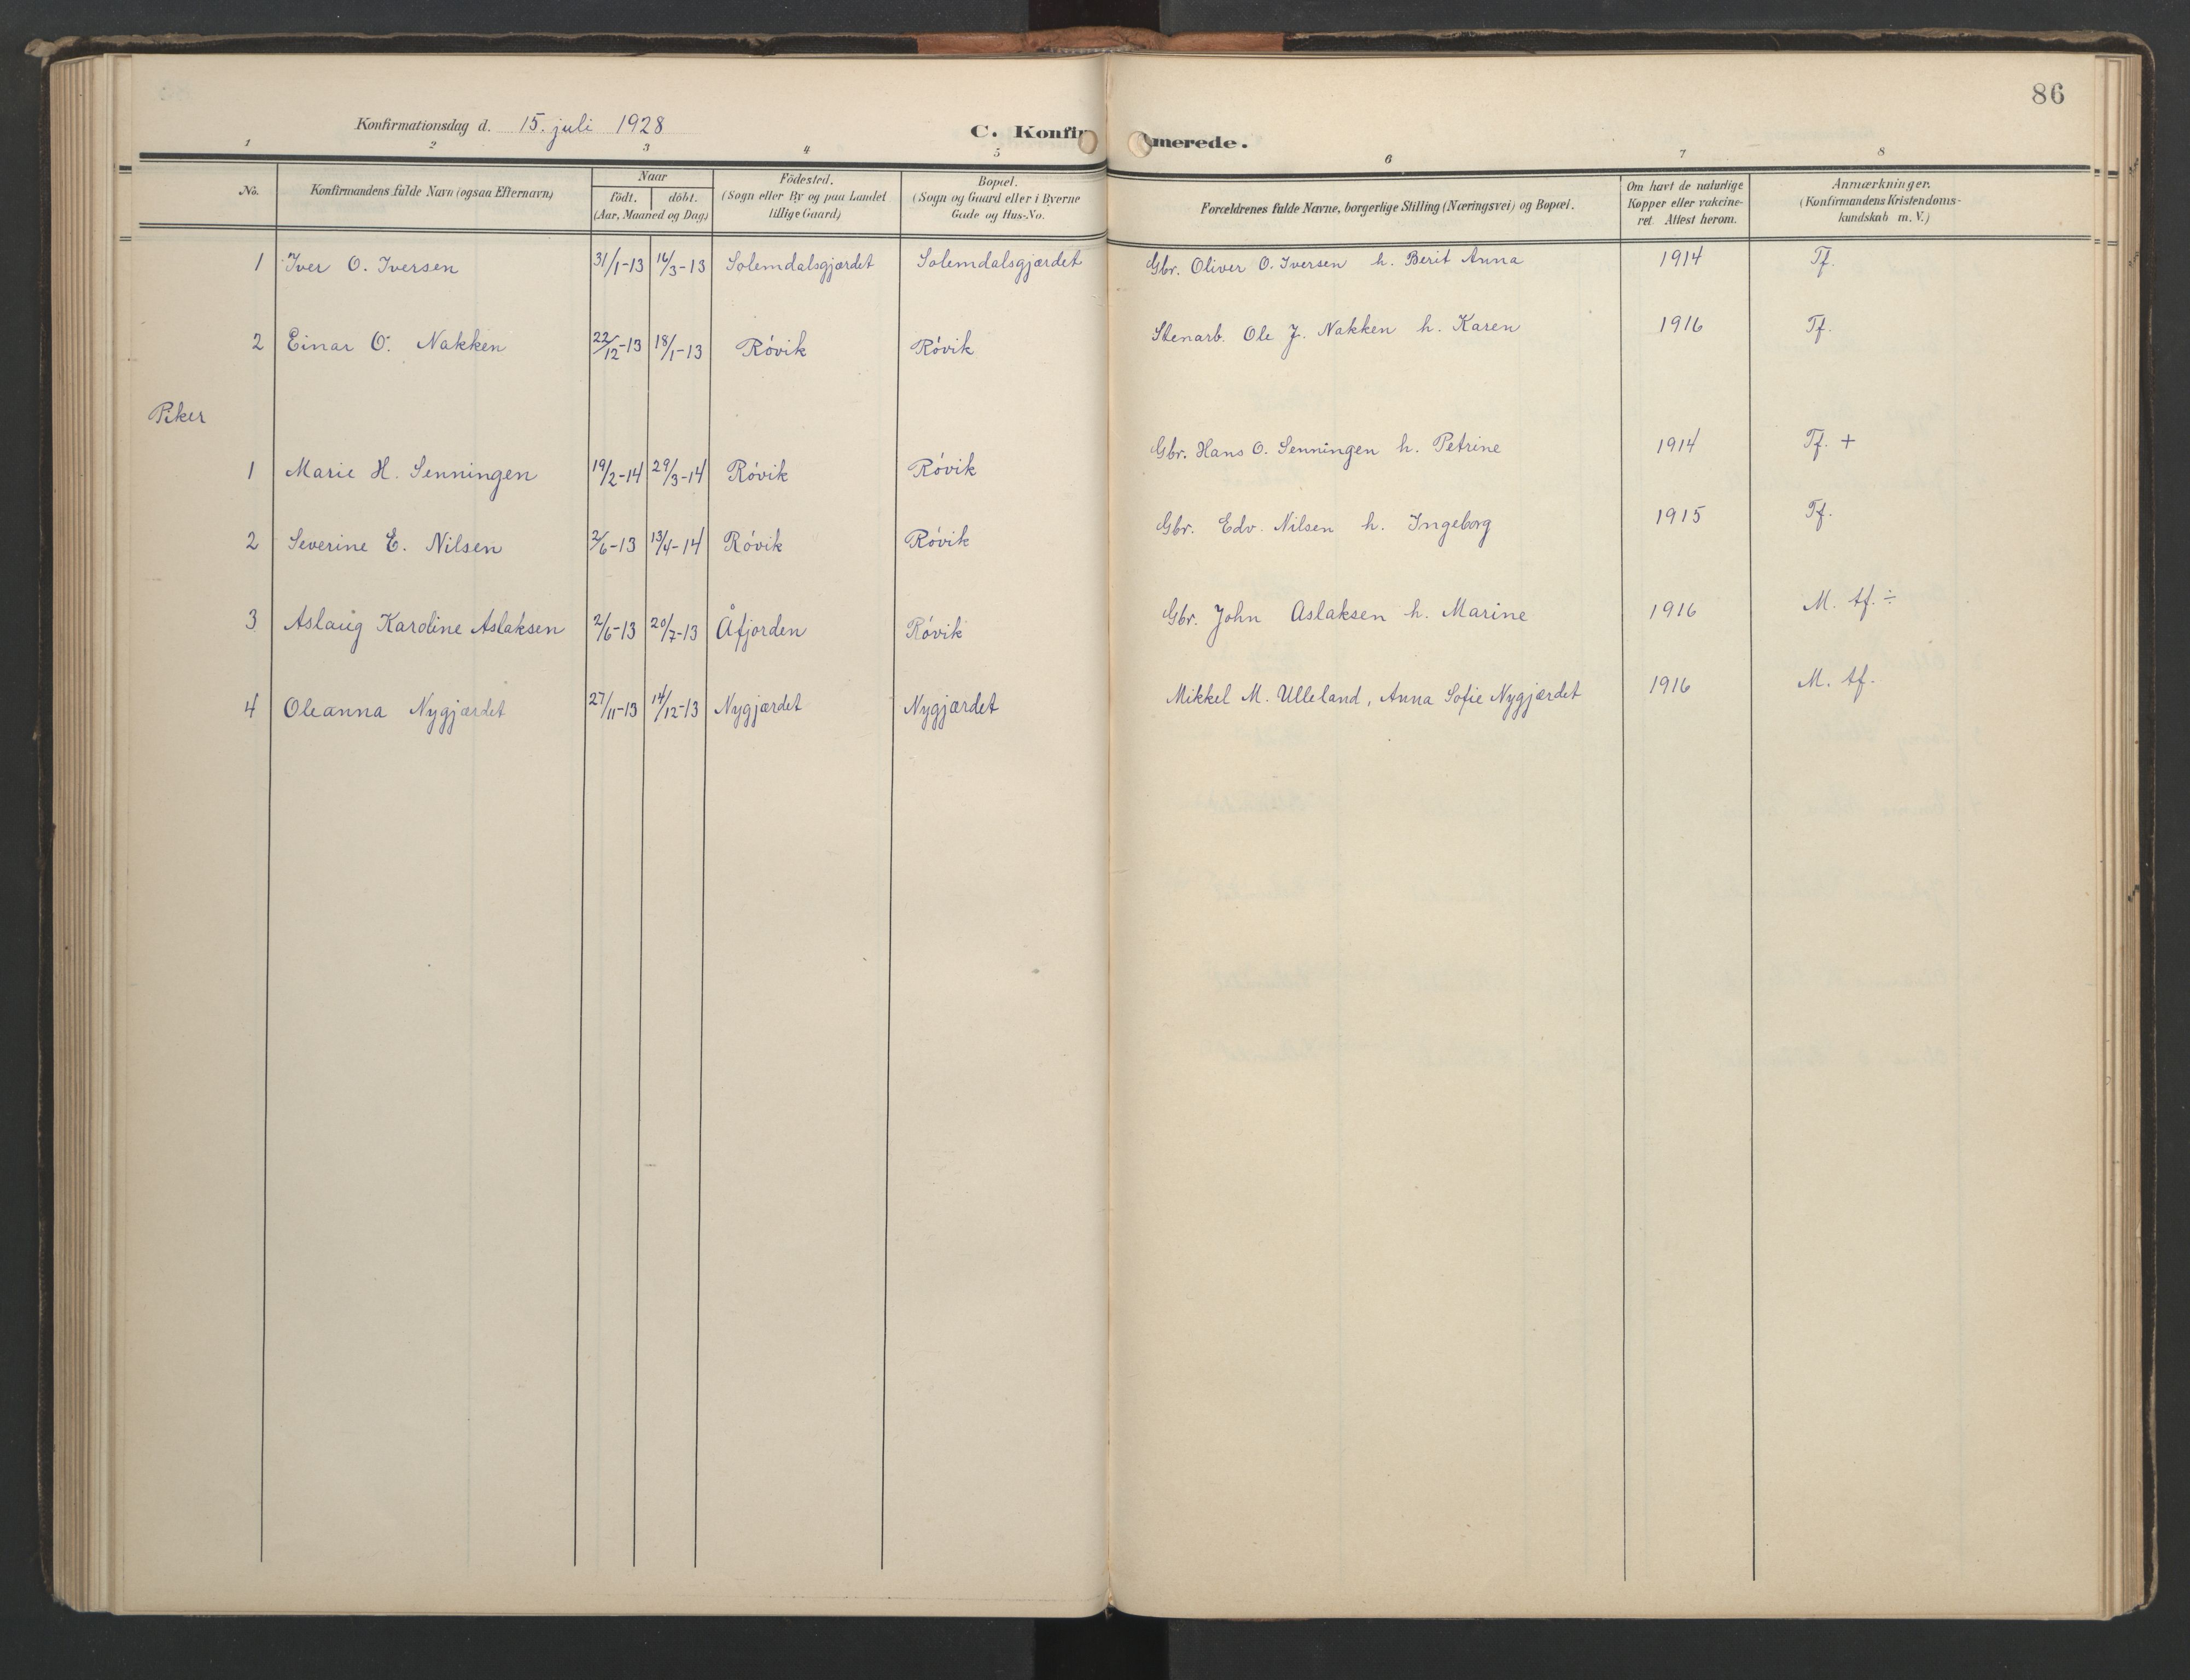 86
Konfirmationsdag d. 15. juli 1928
C. Konfirmerede.
1 2 3 4 5 6 7 8
No.
Konfirmandens fulde Navn (ogsaa Efternavn)
Naar
födt. döbt.
(Aar, Maaned og Dag)
Födested.
(Sogn eller By og paa Landet
tillige Gaard)
Bopæl.
(Sogn og Gaard eller i Byerne
Gade og Hus-No.
Forældrenes fulde Navne, borgerlige Stilling (Næringsvei) og Bopæl.
Om havt de naturlige
Kopper eller vakcine-
ret. Attest herom.
Anmærkninger.
(Konfirmandens Kristendoms-
kundskab m. V.)
1 Iver O. Iversen 31/1-13 16/3-13 Solemdalsgjærdet Solemdalsgjærdet Gbr. Oliver O. Iversen h. Berit Anna 1914 Tf.
2 Einar O. Nakken 22/12-13 18/1-13 Róvik Róvik Stenarb. Ole J. Nakken h. Karen 1916 Tf.
Piker
1 Marie H. Senningen 19/2-14 29/3-14 Róvik Róvik Gbr. Hans O. Senningen h. Petrine 1914 Tf. +
2 Severine E. Nilsen 2/6-13 13/4-14 Róvik Róvik Gbr. Edv. Nilsen h. Ingeborg 1915 Tf.
3 Aslaug Karoline Aslaksen 2/6-13 20/7-13 Åfjorden Róvik Gbr. John Aslaksen h. Marine 1916 M. tf. ÷
4 Oleanna Nygjærdet 27/11-13 14/12-13 Nygjærdet Nygjærdet Mikkel M. Ulleland, Anna Sofie Nygjærdet 1916 M. tf.